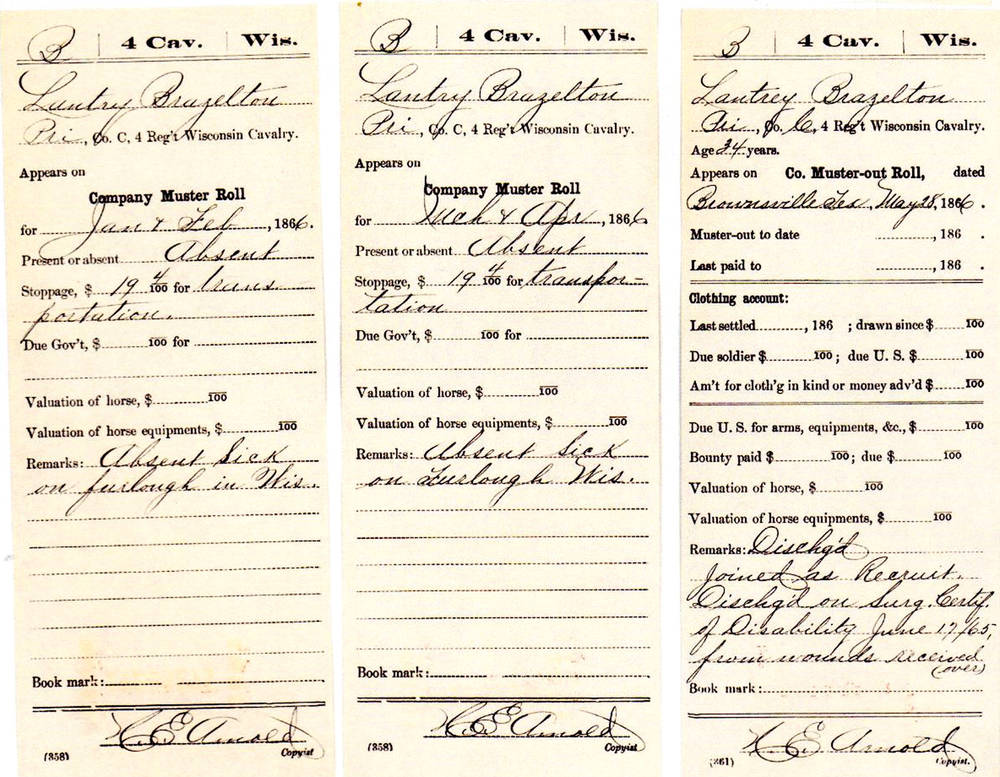 B | 4 Cav. | Wis.
Lantry Brazelton
Pri, Co. C, 4 Reg't Wisconsin Cavalry.
Appears on
Company Muster Roll
for Jan & Feb, 1866.
Present or absent Absent
Stoppage, $ 19 4/100 for trans
portation.
Due Gov't, $ 100 for
Valuation of horse, $ 100
Valuation of horse equipments, $ 100
Remarks: Absent Sick
on furlough in Wis.
Book mark:
H E Arnold
(358) Copyist
B | 4 Cav. | Wis.
Lantry Brazelton
Pri, Co. C, 4 Reg't Wisconsin Cavalry.
Appears on
Company Muster Roll
for Mch & Apr, 1866.
Present or absent Absent
Stoppage, $ 19 4/100 for transpor-
tation
Due Gov't, $ 100 for
Valuation of horse, $ 100
Valuation of horse equipments, $ 100
Remarks: Absent Sick
on Furlough Wis.
Book mark:
H E Arnold
(358) Copyist.
B | 4 Cav. | Wis.
Lantrey Brazelton
Pri, Co. C, 4 Reg't Wisconsin Cavalry.
Age 34 years.
Appears on Co. Muster-out Roll, dated
Brownsville Tex, May 28, 1866.
Muster-out to date , 186 .
Last paid to , 186 .
Clothing account:
Last settled , 186 ; drawn since $ 100
Due soldier $ 100; due U. S. $ 100
Am't for cloth'g in kind or money adv'd $ 100
Due U. S. for arms, equipments, &c., $ 100
Bounty paid $ 100; due $ 100
Valuation of horse, $ 100
Valuation of horse equipments, $ 100
Remarks: Dischg'd
Joined as Recruit.
Dischg'd on Surg. Certif.
of Disability June 17/65,
from wounds received
(over)
Book mark:
H E Arnold
(361) Copyist.